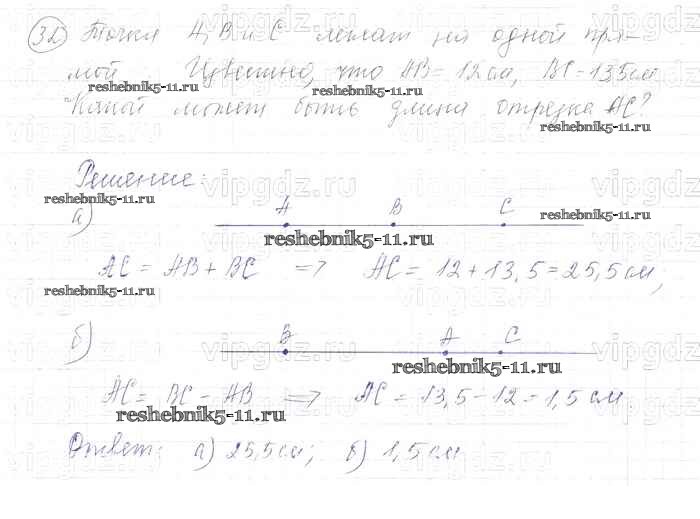 32) Точки A, B и C лежат на одной пря-
мой Известно, что AB = 12 см, BC = 13,5 см
reshebnik5-11.ru reshebnik5-11.ru
Какой может быть длина отрезка AC?
reshebnik5-11.ru
Решение:
vipgdz.ru
reshebnik5-11.ru
а) A B C
reshebnik5-11.ru
reshebnik5-11.ru
AC = AB + BC => AC = 12 + 13,5 = 25,5 см;
reshebnik5-11.ru
б) B A C
reshebnik5-11.ru
AC = BC - AB => AC = 13,5 - 12 = 1,5 см
reshebnik5-11.ru
Ответ: а) 25,5 см; б) 1,5 см